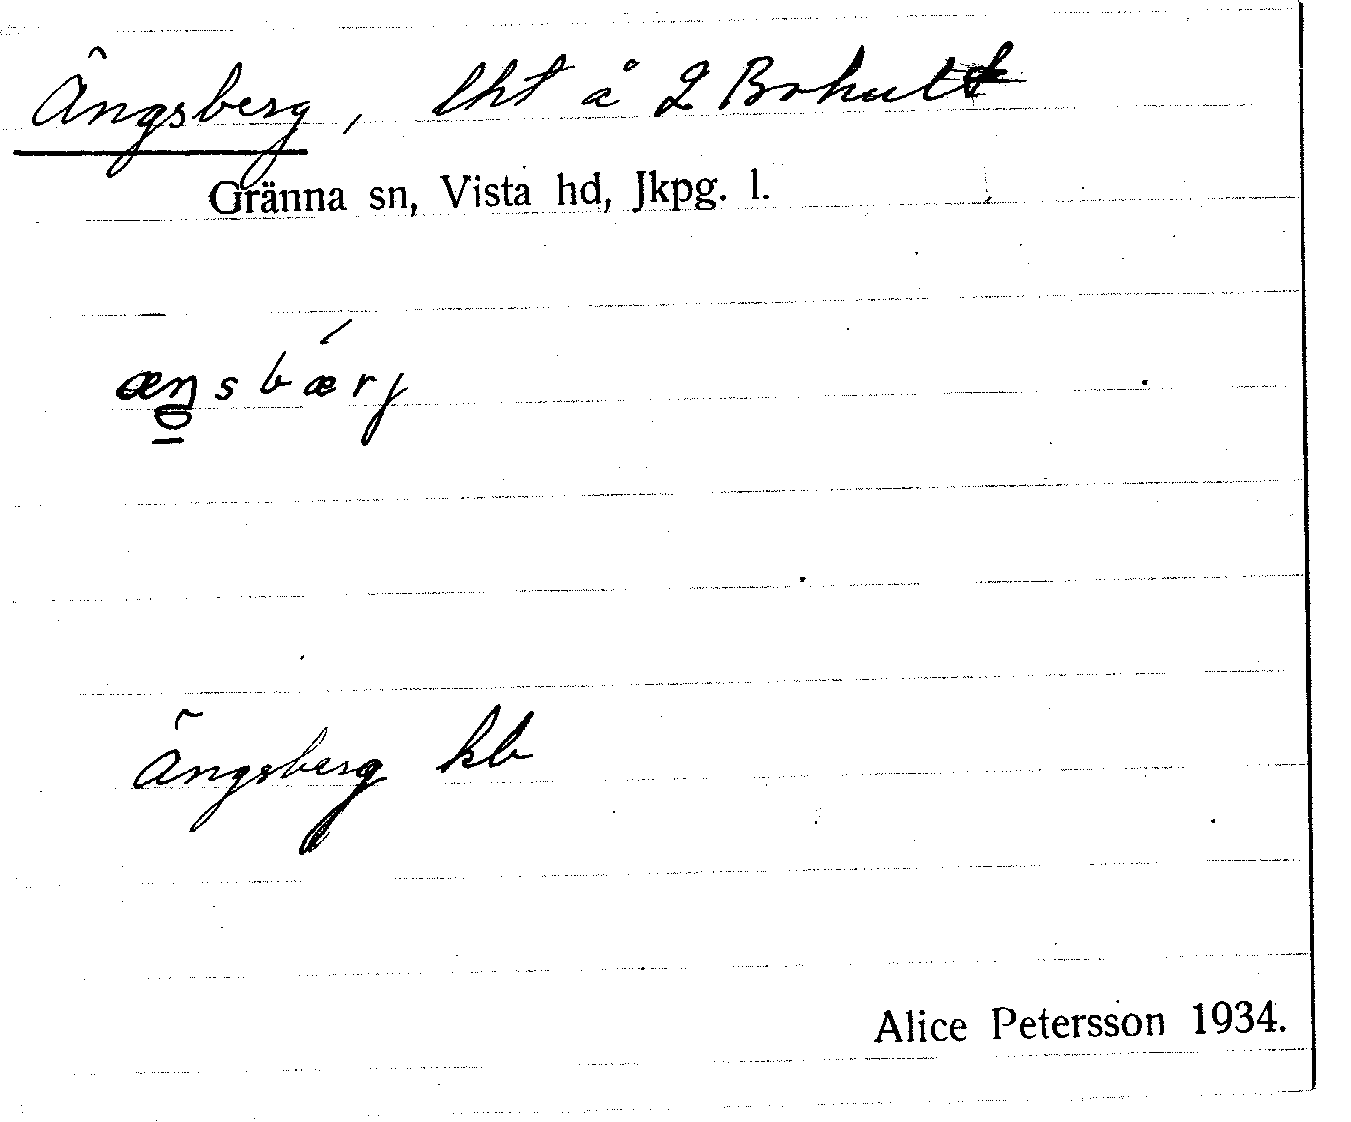 Ängsberg, lht å 2 Bohult
Gränna sn, Vista hd, Jkpg. l.
æŋsbærj
Ängsberg kb
Alice Petersson 1934.